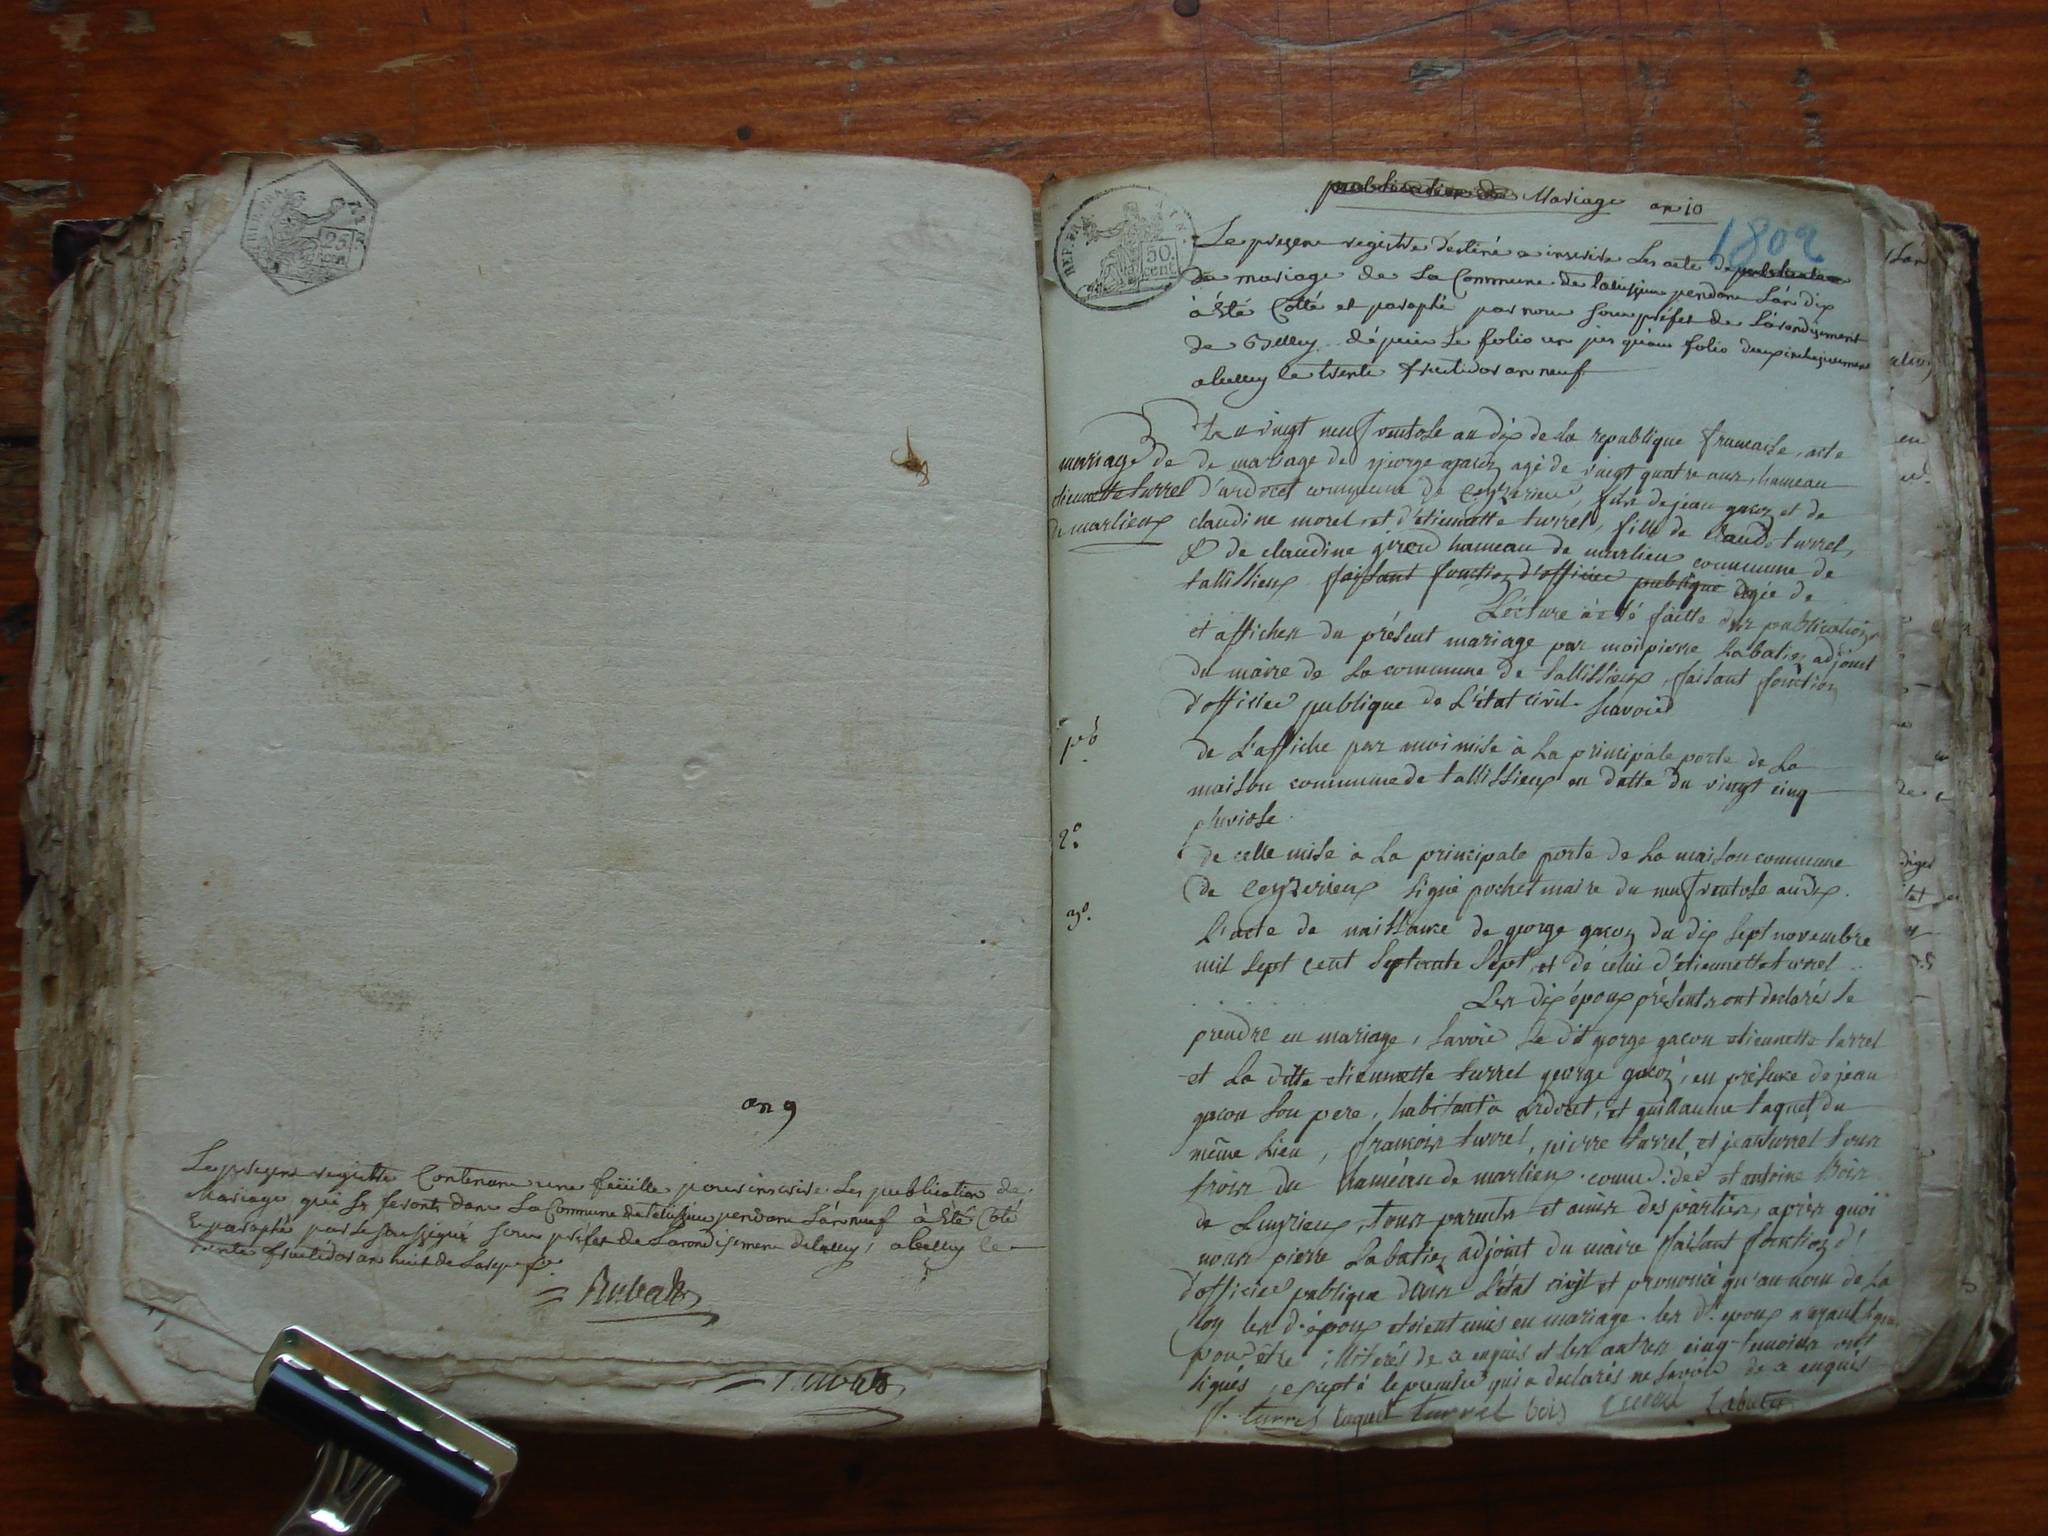 REP. FRA.
25
cen
an 9
Le present registre Contenant une feüille pour inscrire Les publication de
Mariage qui se feront dans La Commune de talissieu pendant L'an neuf à Eté Coté
& paraphé par le soussigné sous préfet de L'arondissement de belley, a belley le
trente fructidor an huit de La rep. f.se
Rubat
publication de Mariage an 10
1802
REP. FRA.
50
cent
Le present registre destiné a inscrire Les acte de publication
de mariage de La Commune de talissieu pendant L'an dix
à Eté Cotté et paraphé par nous sous préfet de L'arondissement
de Belley depuis Le folio un jus qu'au folio deux inclusivement
a belley le trente fructidor an neuf
mariage de
etiennette turrel
de marlieux
Le vingt neuf ventose an dix de la republique francaise, acte
de mariage de george gacon agé de vingt quatre ans, hameau
d'ardocet commune de ceyzerieu, fils de jean gacon et de
claudine morel, et d'etiennette turrel, fille de claude turrel,
& de claudine hameau de marlieu commune de
tallissieux faisant fonction d'officier publique agée de
Lecture à eté faitte des publications
et affiches du présent mariage par moi pierre Labatie adjoint
du maire de La commune de tallissieux, faisant fonction
d'officier publique de L'état civil. scavoir
1º
de L'affiche par moi mise à La principale porte de La
maison commune de tallissieux en datte du vingt cinq
pluviose.
2º.
de celle mise à La principale porte de La maison commune
de ceyzerieux signé pochet maire du neuf ventose an dix.
3º.
L'acte de naissance de george gacon du dix sept novembre
mil sept cent septante sept, et de celui d'etiennette turrel
Les dix époux présents ont declarés se
prendre en mariage, savoir Le dit george gacon etiennette turrel
et La ditte etiennette turrel george gacon, en présence de jean
gacon son pere, habitant a ardocet, et guillaume taquet du
même Lieu, francois turrel, pierre turrel, et jean turrel tous
trois du haméau de marlieu et antoine Bois
de Luyrieux, tous parents et amis des parties, après quoi
nous pierre Labatie adjoint du maire faisant fonction d'
d'officier publique dans L'état civil et prononcé qu'au nom de La
loy les d. époux etoient unis en mariage. les dt. époux n'ayant signé
pour être illiterés de ce enquis et les autres cinq temoins ont
signés, excepté le premier qui a declarés ne savoir de ce enquis
turrel taquet turrel bois Labatie